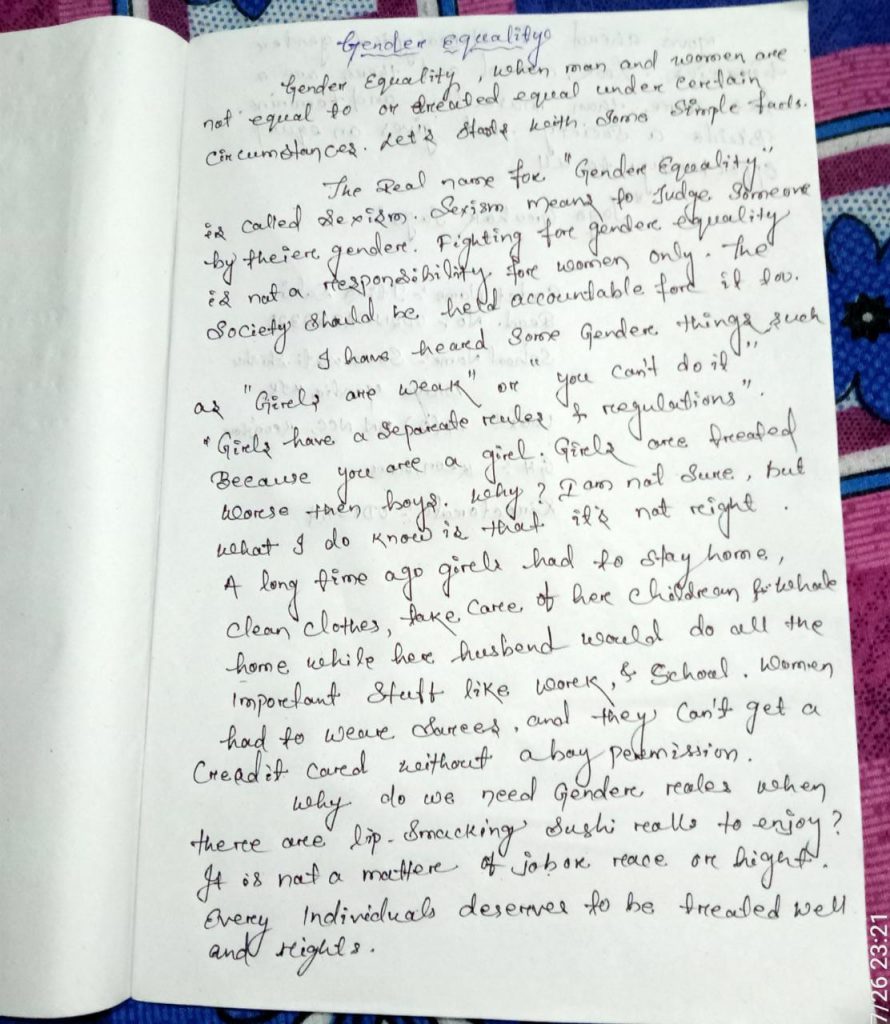 Gender Equality
Gender Equality, when man and women are
not equal to or treated equal under certain
circumstances. Let's starts with some simple facts.
The Real name for "Gender Equality"
is called sexism. Sexism means to Judge Someone
by theiere gendere. Fighting fore gendere equality
is not a responsibility fore women only. The
Society should be held accountable ford it too.
I have heared some Gendere things such
as "Girels are weak" or "you can't do it"
"Girels have a separeate reules & reegulations".
Because you aree a girel. Girels aree treeated
worese then boys. Why? I am not sure, but
what I do know is that it's not reight.
A long time ago girels had to stay home,
clean clothes, take caree of here childrean & whole
home while here husbend would do all the
Imporetant stuff like worek, & School. Women
had to weare sarees, and they can't get a
Creadit cared without a boy permission.
Why do we need Gendere reoles when
theree are lip-smacking sushi realls to enjoy?
It is not a mattere of job or reace ore hight.
Every Individuals deserves to be treeated well
and reights.
7/26 23:21